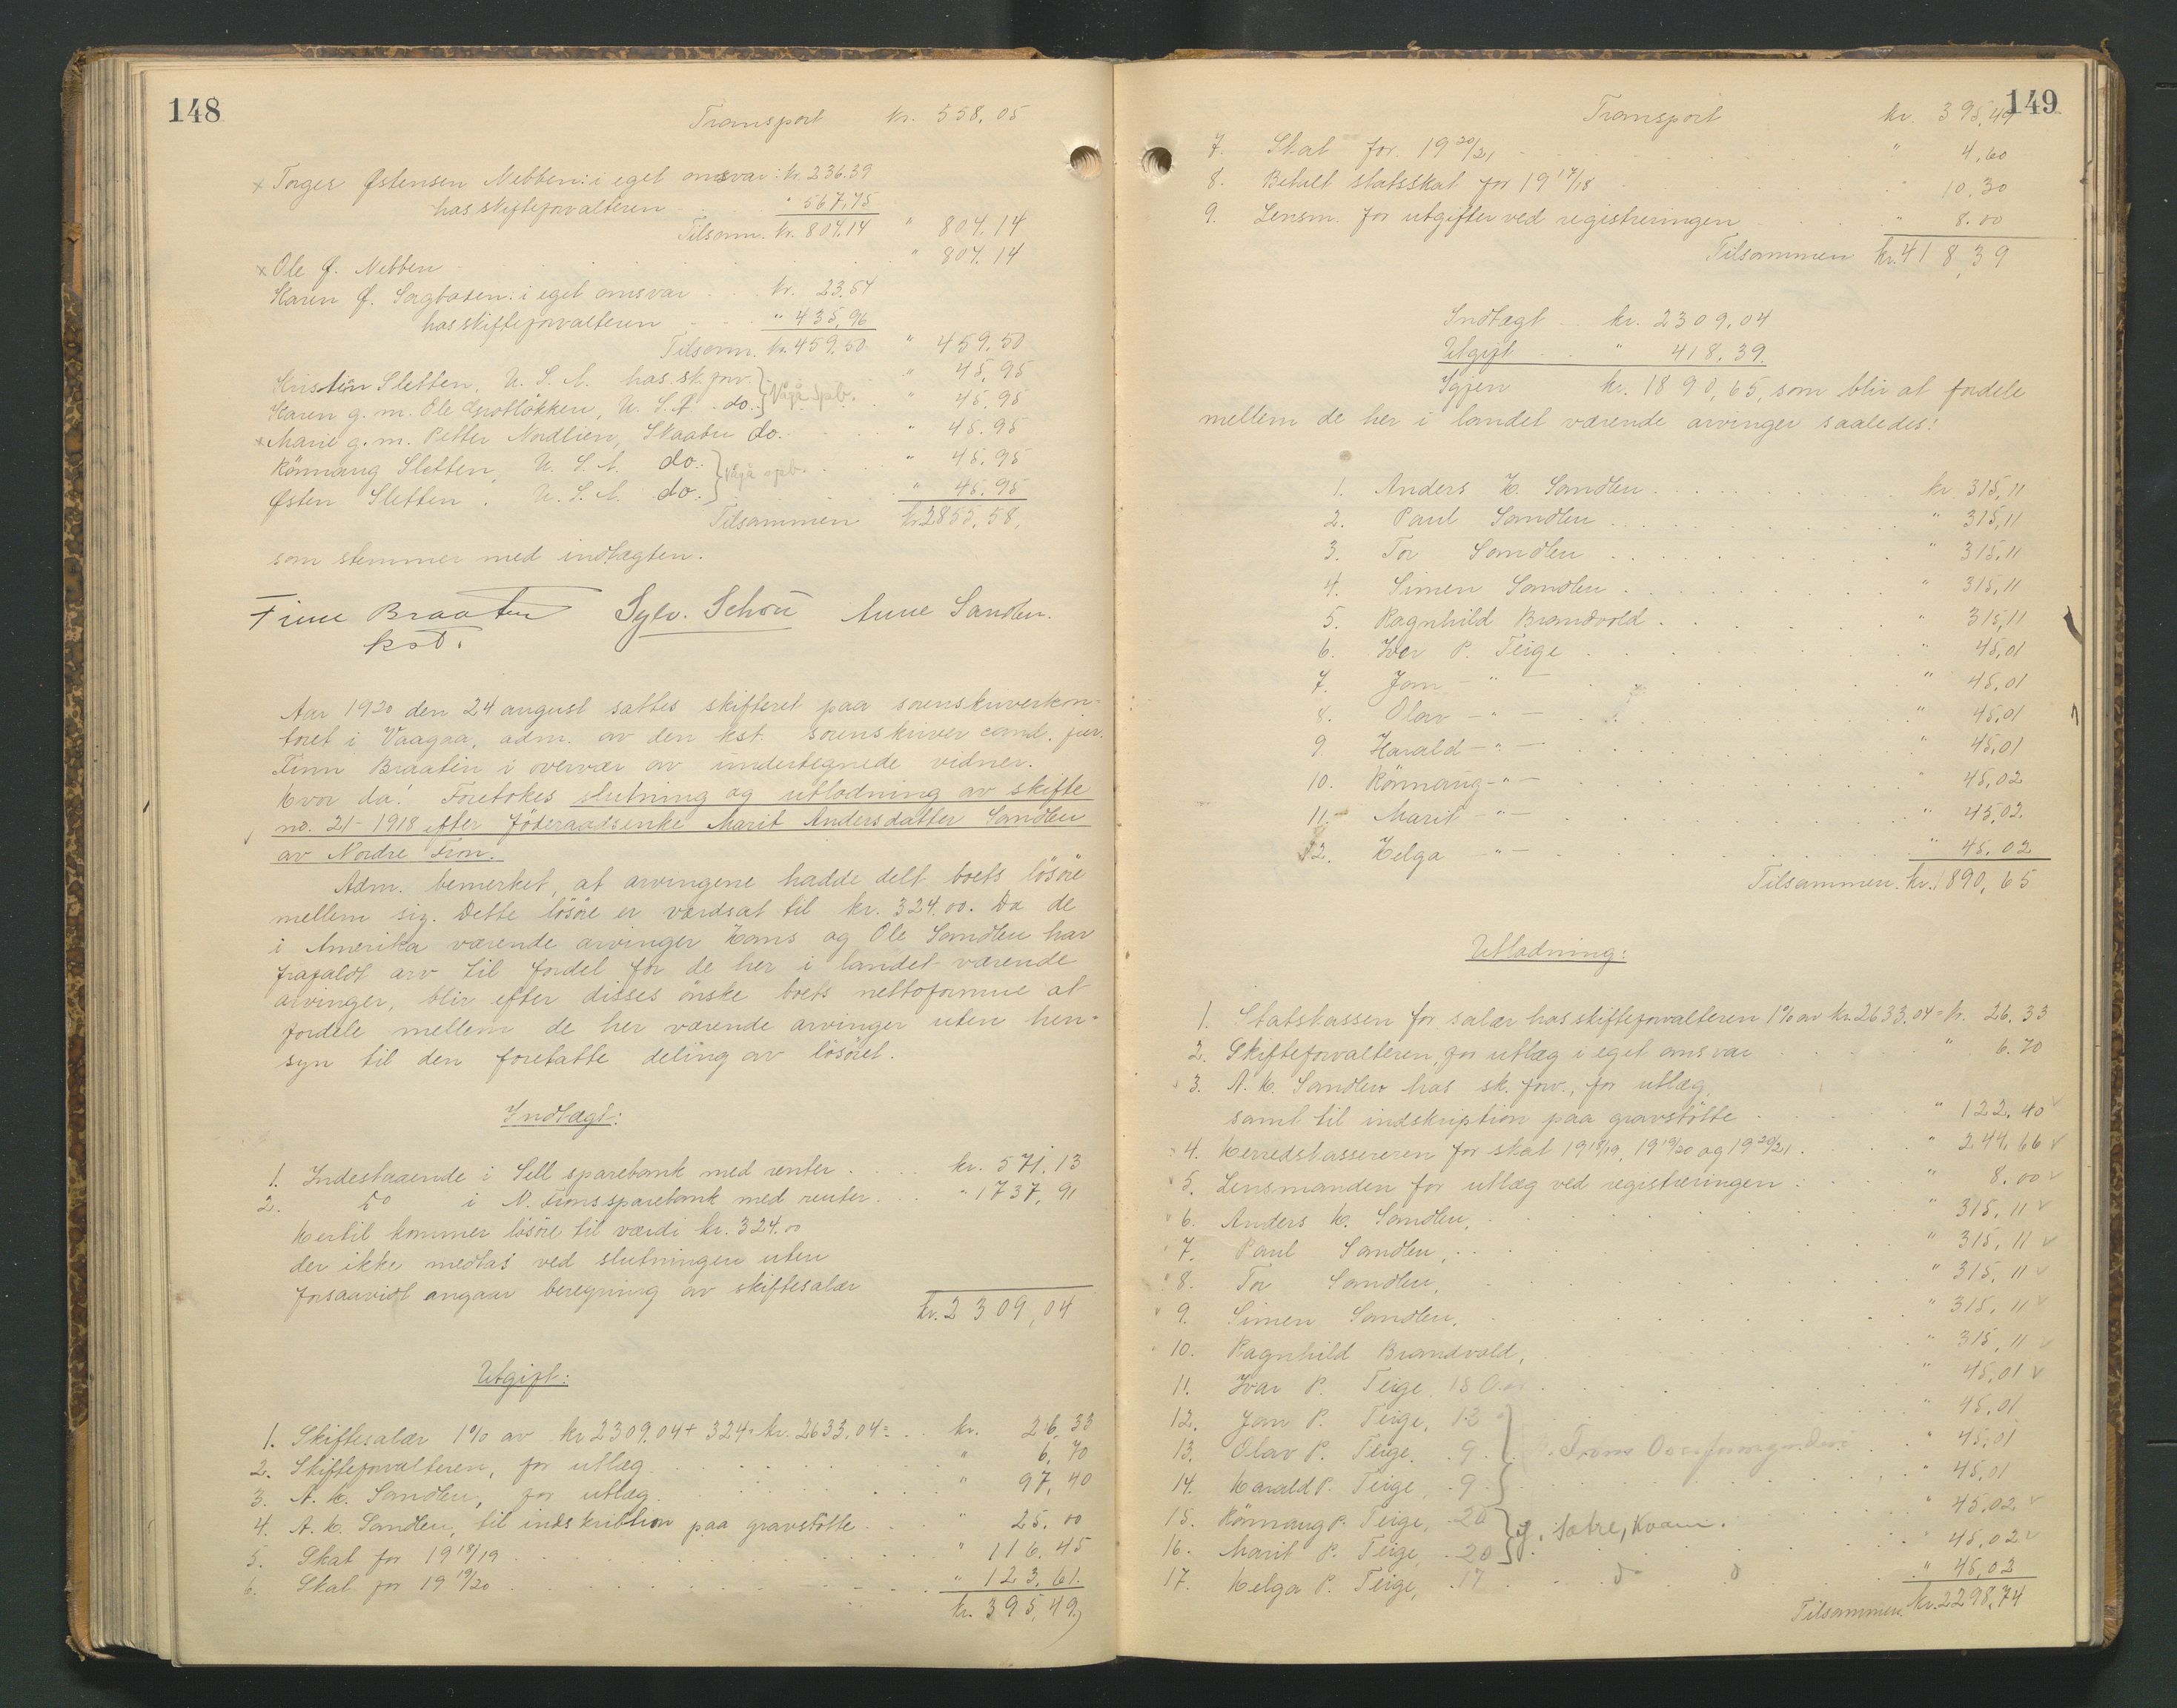 148
Transport kr. 558,05
x Torger Østensen Nebben: i eget omsvar: kr. 236.39
hos skifteforvalteren " 567,75
Tilsam. kr. 804.14 " 804.14
x Ole Ø. Nebben " 804.14
Karen Ø. Sorgbøien: i eget omsvar kr. 23,54
hos skifteforvalteren " 435,96
Tilsam. kr. 459,50 " 459.50
Kristin Sletten, U. S. A. hos. sk. forv. " 45,95
Karen g. m. Ole Grotløkken, U. S. A. do. } Vågå Spb. " 45.95
x Marie g. m. Petter Nordlien, Skaabu do. " 45.95
Rönnaug Sletten, U. S. A. do. " 45,95
Østen Sletten, U. S. A. do. } Vågå spb. " 45.95
Tilsammen kr. 2855,58,
som stemmer med indtægten.
Finn Braaten Sylv. Schou Anne Sandlen.
kst.
Aar 1920 den 24 august sattes skifteret paa sorenskriverkon-
toret i Vaagaa, adm. av den kst. sorenskriver cand. jur.
Finn Braaten i overvær av undertegnede vidner.
Hvor da: Foretokes slutning og utlodning av skifte
no. 21 - 1918 efter föderaadsenke Marit Andersdatter Sandlen
av Nordre Fron.
Adm. bemerket, at arvingene hadde delt boets lösöre
mellem sig. Dette lösöre er værdsat til kr. 324.00. Da de
i Amerika værende arvinger Hans og Ole Sandlen har
frafaldt arv til fordel for de her i landet værende
arvinger, blir efter disses önske boets nettoformue at
fordele mellem de her værende arvinger uten hen-
syn til den foretatte deling av lösöret.
Indtægt:
1. Indestaaende i Sell sparebank med renter kr. 571.13
2. do i N. Frons sparebank med renter " 1737,91
Hertil kommer lösöre til værdi kr. 324.00
der ikke medtas ved slutningen uten
forsaavidt angaar beregning av skiftesalær
kr. 2309,04
Utgift:
1. Skiftesalær 1% av kr 2309.04 + 324 = kr. 2633.04 = kr. 26,33
2. Skifteforvalteren, for utlæg " 6,70
3. A. H. Sandlen, for utlæg " 97,40
4. A. H. Sandlen, til indskribtion paa gravstötte " 25.00
5. Skat for 19 18/19 " 116.45
6. Skat for 19 19/20 " 123.61.
kr. 395,49.
149
Transport kr. 395,49
7. Skat for 19 20/21 " 4,60
8. Betalt statsskat for 19 17/18 " 10.30
9. Lensm. for utgifter ved registreringen " 8.00
Tilsammen kr. 418,39
Indtægt kr. 2309,04
Utgift " 418.39.
Igjen kr. 1890,65, som blir at fordele
mellem de her i landet værende arvinger saaledes:
1. Anders H. Sandlen kr 315,11
2. Paul Sandlen " 315,11
3. Tor Sandlen " 315,11
4. Simen Sandlen " 315,11
5. Ragnhild Brandvold " 315,11
6. Ivar P. Teige " 45,01
7. Jon - " - " 45,01
8. Olav - " - " 45,01
9. Harald - " - " 45,01
10. Rönnaug - " - " 45,02
11. Marit - " - " 45,02.
12. Helga - " - " 45.02
Tilsammen. kr. 1890,65
Utlodning:
1. Statskassen for salær hos skifteforvalteren 1% av kr. 2633,04 = kr. 26.33
2. Skifteforvalteren, for utlæg i eget omsvar " 6.70
3. A. H. Sandlen hos sk. forv., for utlæg
samt til indskription paa gravstötte " 122.40
4. Herredskassereren for skat 19 18/19, 19 19/20 og 19 20/21 " 244.66
5. Lensmanden for utlæg ved registreringen " 8.00
6. Anders H. Sandlen, " 315,11
7. Paul Sandlen, " 315,11
8. Tor Sandlen, " 315,11
9. Simen Sandlen, " 315,11
10. Ragnhild Brandvold, " 315,11
11. Ivar P. Teige, 18 " 45,01
12. Jon P. Teige, 12 " 45,01
13. Olav P. Teige. 9 N. Frons Overformynderi " 45,01
14. Harald P. Teige, 9 " 45,01
15. Rönnaug P. Teige, 20 " 45,02
16. Marit P. Teige, 20 } Sætre, Kvam. " 45,02
17. Helga P. Teige, 17 " 45,02
Tilsammen kr. 2298,74